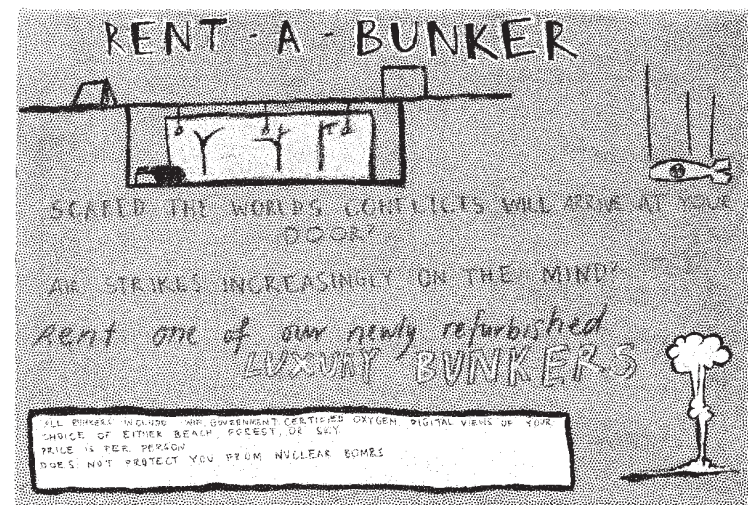 RENT-A-BUNKER
SCARED THE WORLDS CONFLICTS WILL ARRIVE AT YOUR
DOOR?
AIR STRIKES INCREASINGLY ON THE MIND?
Rent one of our newly refurbished
LUXURY BUNKERS
ALL BUNKERS INCLUDE WIFI, GOVERNMENT CERTIFIED OXYGEN, DIGITAL VIEWS OF YOUR
CHOICE OF EITHER BEACH, FOREST, OR SKY
PRICE IS PER PERSON
DOES NOT PROTECT YOU FROM NUCLEAR BOMBS